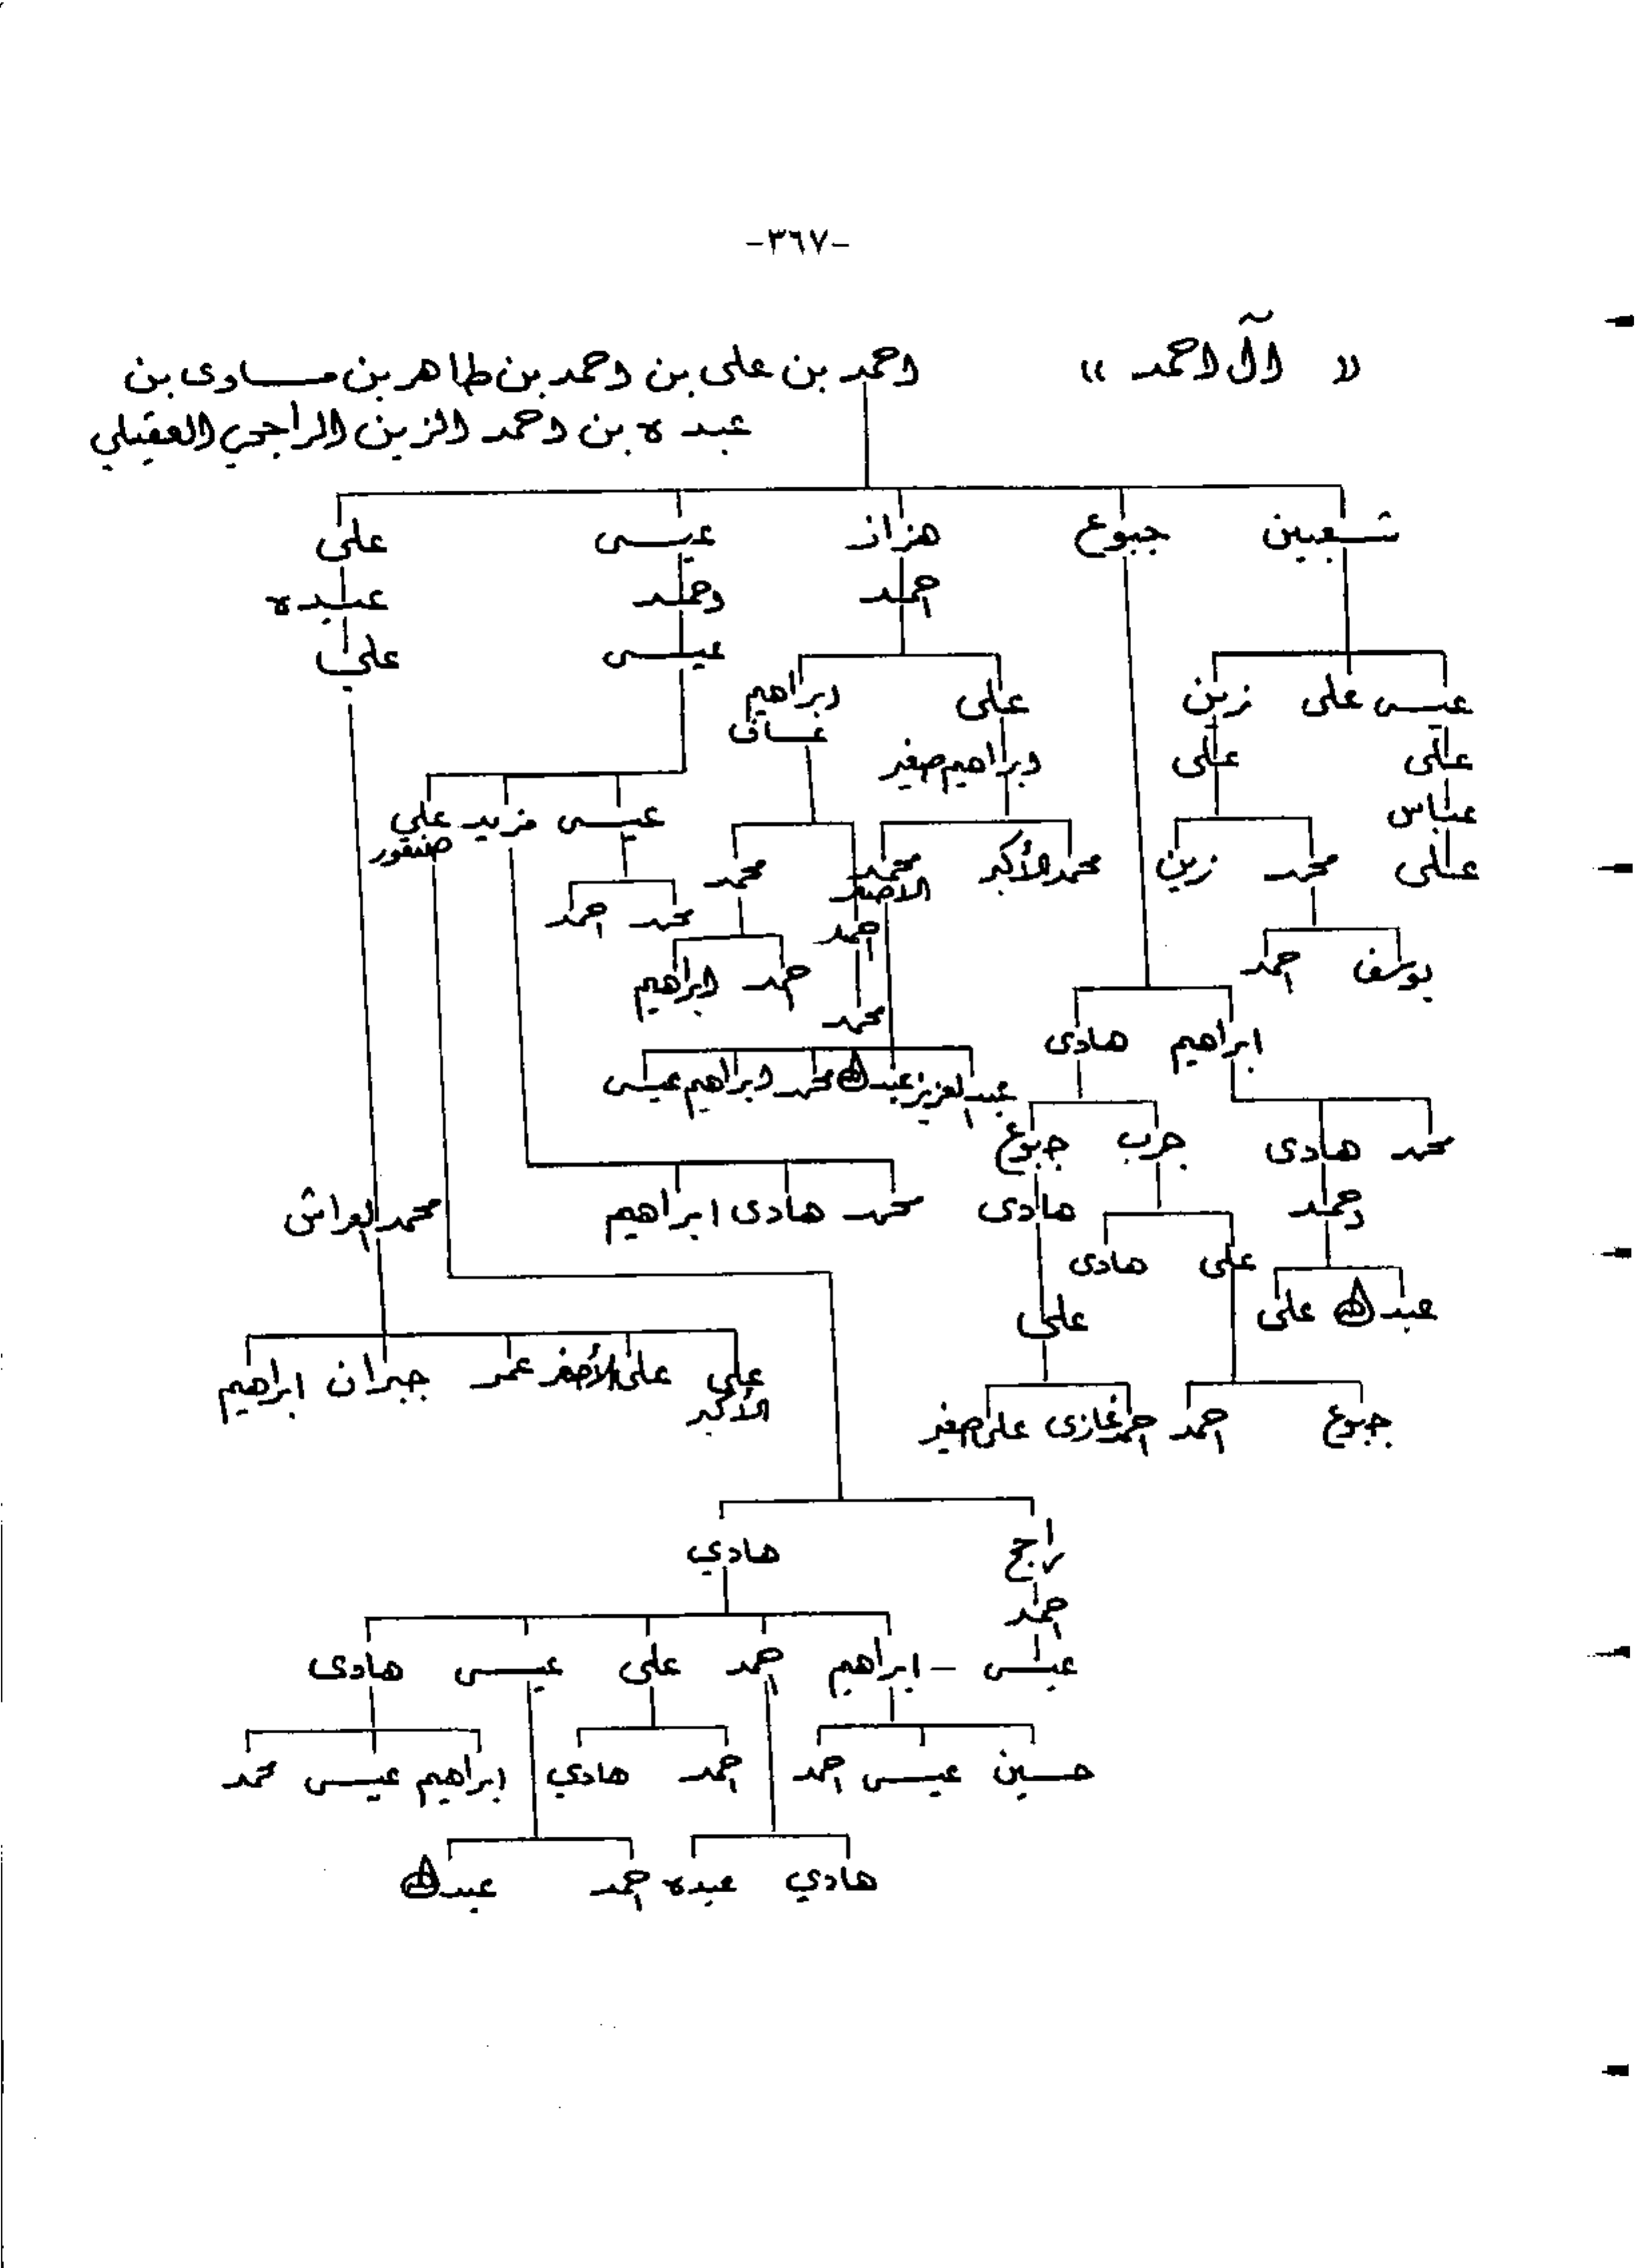 -٣٦٧-
« آل احمد » احمد بن على بن احمد بن طاهر بن مساوى بن
عبده بن احمد الزين الراجحي العقيلي
شعبين جبوع هزاز عيسى على
احمد احمد عبده
عيسى علي
عيسى على زين على ابراهيم
عساف
على على ابراهيم صغير
عباس عيسى مزيد علي
صنقور
على محمد زين محمد الأكبر محمد
الاصغر محمد
محمد احمد
احمد
يوسف احمد احمد ابراهيم
محمد
ابراهيم هادى
عبد العزيز عبدالله محمد ابراهيم عيسى
محمد هادى حرب جبوع
احمد هادى محمد هادى ابراهيم محمد العراش
على هادى
عبدالله على على
على
الأكبر على الأصغر عمر جبران ابراهيم
جبوع احمد احمد غازى على صغير
راجح هادي
احمد
عيسى - ابراهيم احمد على عيسى هادى
حسين عيسى احمد احمد هادي ابراهيم عيسى محمد
هادي عبده احمد عبدالله